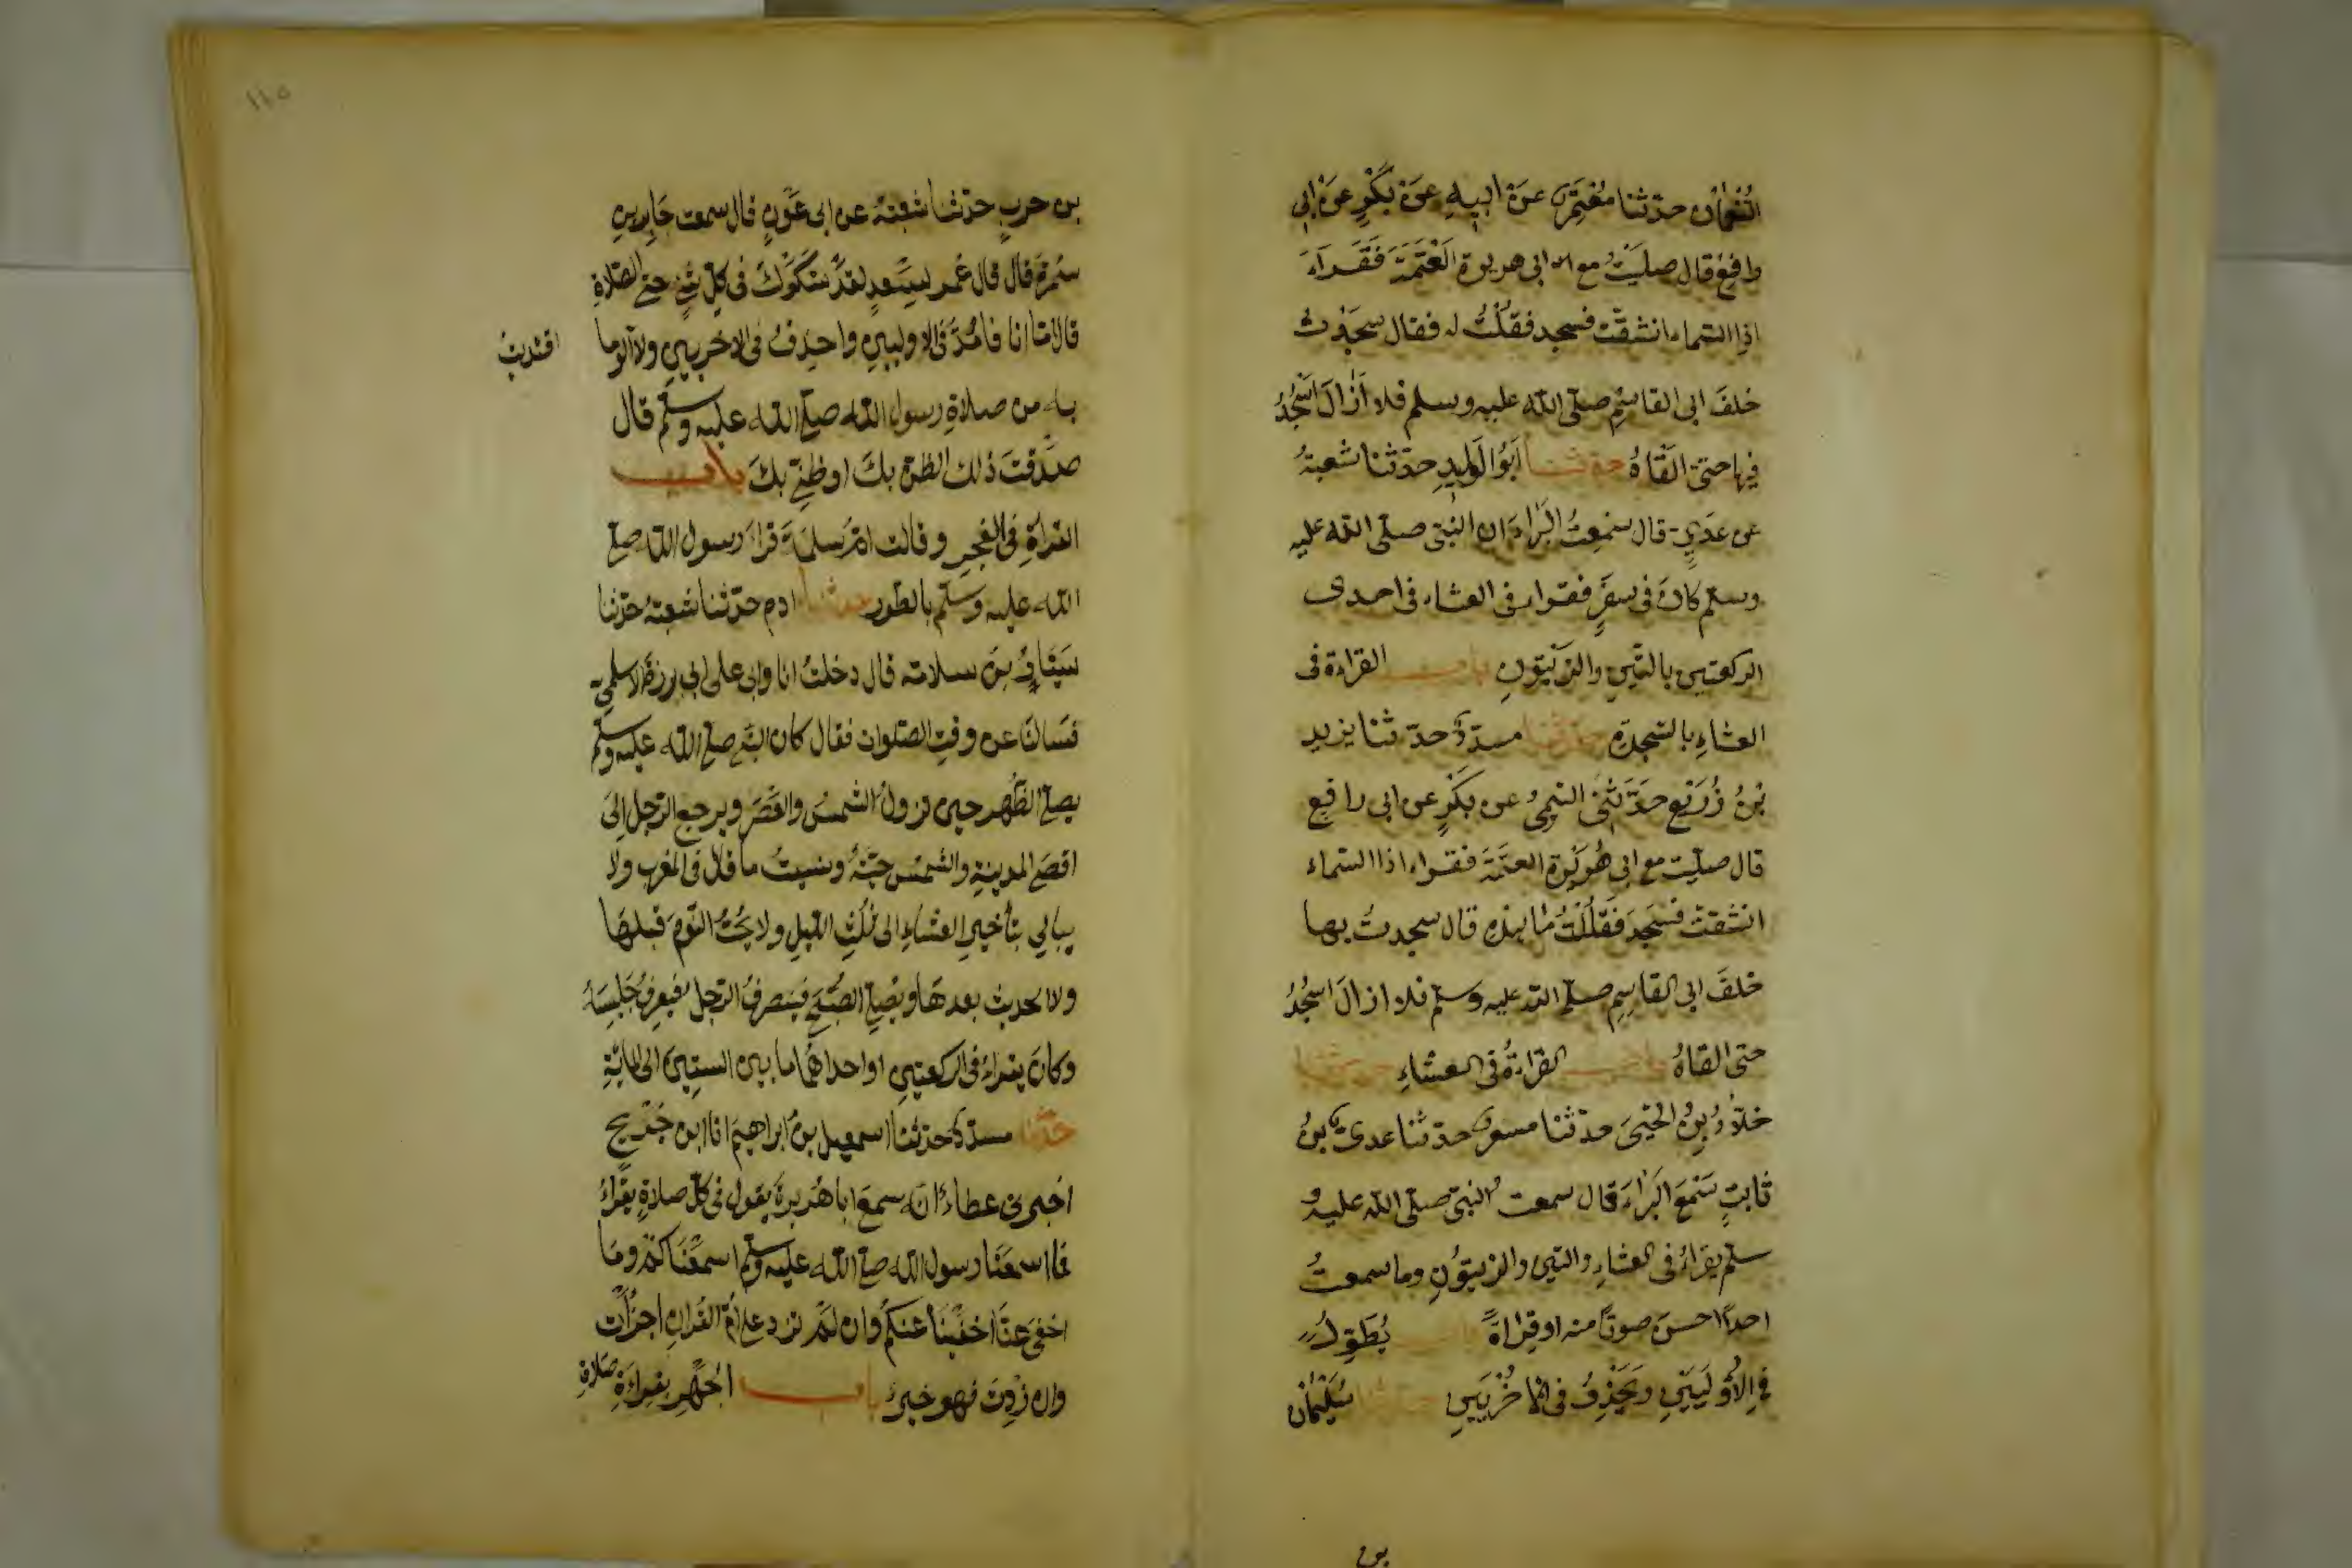 النُّعْمَان حدّثنا مُعْتَمِرٌ عَنْ ابِيهِ عَنْ بَكْرٍ عَنْ ابى
رافعٍ قال صليتُ مع ابى هريرة العَتَمَةَ فَقَرَاءَ
اذا السّماء انشقّت فسجد فقُلْتُ له فقال سجَدْتُ
خلفَ ابى القاسِمِ صلّى الله عليه وسلم فلا أزالَ اَسْجُدُ
فيها حتى القَاهُ حدثنا اَبُو الوَلِيدِ حدّثنا شعبةُ
عن عَدِيٍّ قال سَمِعتُ البَرَاءَ ان النبىّ صلّى الله عليه
وسلم كانَ فى سفَرٍ فقرا فى العشاء فى احدى
الركعتين بالتّينِ والزّيتُونِ باب القراءة فى
العشاءِ بالسّجدةِ حدّثنا مسدّدٌ حدّثنا يزيد
بْنُ زُرَيْعٍ حَدَّثَنِى التيمىُّ عن بَكْرٍ عن ابى رافِعٍ
قال صليت مع ابى هُرَيْرَة العَتَمَةَ فقراء اذا السّماء
انشقّتْ فسَجَدَ فَقُلْتُ ما هذِهِ قال سجدتُ بها
خلفَ ابى القاسِمِ صلّى الله عليه وسلّم فلا ازالَ اسْجُدُ
حتى القاهُ باب القراءةُ فى العشاءِ حدّثنا
خلّادُ بنُ يحيىَ حدّثنا مسعرٌ حدّثنا عدىُّ بنُ
ثابتٍ سَمِعَ البَراءَ قال سمعت النبىّ صلّى الله عليه و
سلّم يقراءُ فى العشاءِ والتين والزيتُونِ وما سمعتُ
احدًا احسنَ صوتًا منه او قراءةً باب يُطَوِّلُ
فى الأُولَيَيْنِ ويَحْذِفُ فى الأُخْرَيَيْنِ حدّثنا سُلَيْمَان
بن
١١٥
بن حربٍ حدّثنا شعبةُ عن ابى عَوْنٍ قال سمعت جَابِر بن
سَمُرَةَ قال قال عُمر لِسَعدٍ لقد شَكَوْكَ فى كلّ شئٍ حتى الصّلاةِ
قال امّا انا فامُدُّ فى الاوليينِ واحذِفُ فى الاخريينِ ولا آلو ما
اقتديتُ
به من صلاةِ رسول الله صلى الله عليه وسلّم قال
صدّقتَ ذلك الظنّ بكَ او ظنّى بكَ باب
القراةِ فى الفجرِ وقالت امّ سلمةَ قراءَ رسول الله صلى
الله عليه وسلّم بالطور حدثنا ادم حدّثنا شعبةُ حدّثنا
سَيّارُ بنُ سلامة قال دخلتُ انا وابى على ابى برزةَ الاسلمىِّ
فسَالنَا عن وقتِ الصّلوات فقال كان النبىّ صلى الله عليه وسلّم
يصلى الظّهر حين تزولُ الشّمسُ والعَصْرَ ويرجع الرّجل الى
اقصى المدينةِ والشّمسُ حيّةٌ ونسيتُ ما قال فى المغرب ولا
يبالى بتأخيرِ العشاءِ الى ثُلُثِ الليلِ ولا يُحِبُّ النّومَ قبلَهَا
ولا الحديثَ بعدهَا ويُصلى الصّبحَ فينصرفُ الرّجل فيعرِفُ جَلِيسَهُ
وكانَ يقراءُ فى الركعتينِ او احداهُما ما بين الستينَ الى المايةِ
حدّثنا مسدّدٌ حدّثنا اسمعيل بنُ ابراهيمَ انا ابن جُرَيْجٍ
اخبرنى عطاءُ انّه سمعَ ابا هُرَيرةَ يقول فى كلّ صلاةٍ يقراءُ
فما اسمعَنَا رسول الله صلى الله عليه وسلّم اسمَعْنَاكُمْ وما
اخفى عنّا اخفينا عنكُم وان لَمْ تزد على اُمّ القُرانِ اجزأَتْ
وان زِدتَ فهو خيرٌ باب الجهرِ بقراءةِ صلاةِ